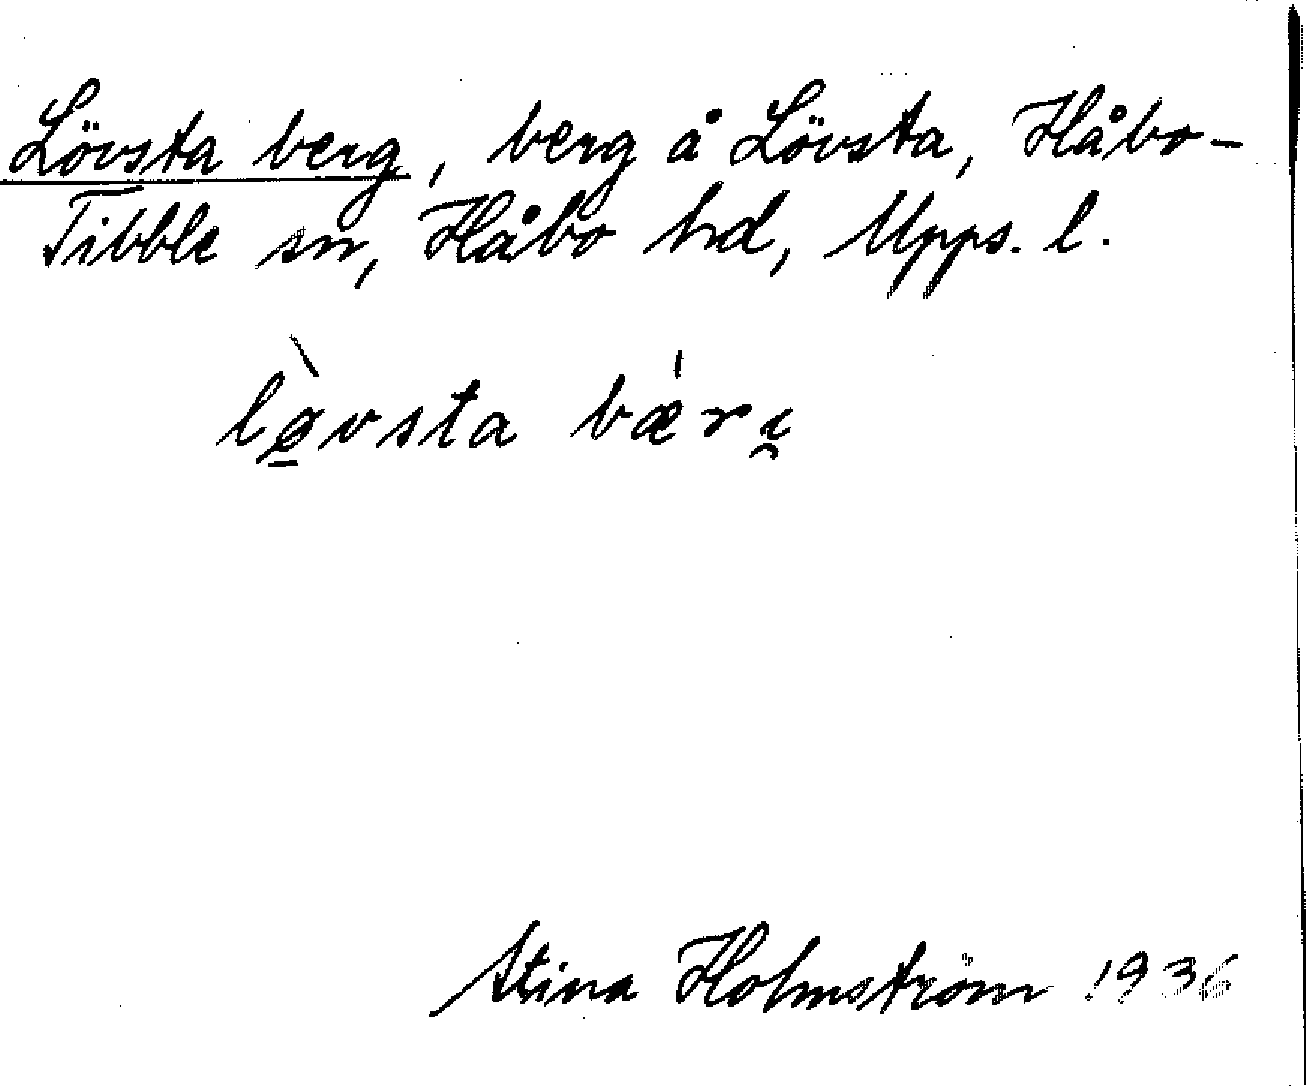 Lövsta berg, berg å Lövsta, Håbo-
Tibble sn, Håbo hd, Upps. l.
lø̠̀vsta bæ̍ri̯
Stina Holmström 1936